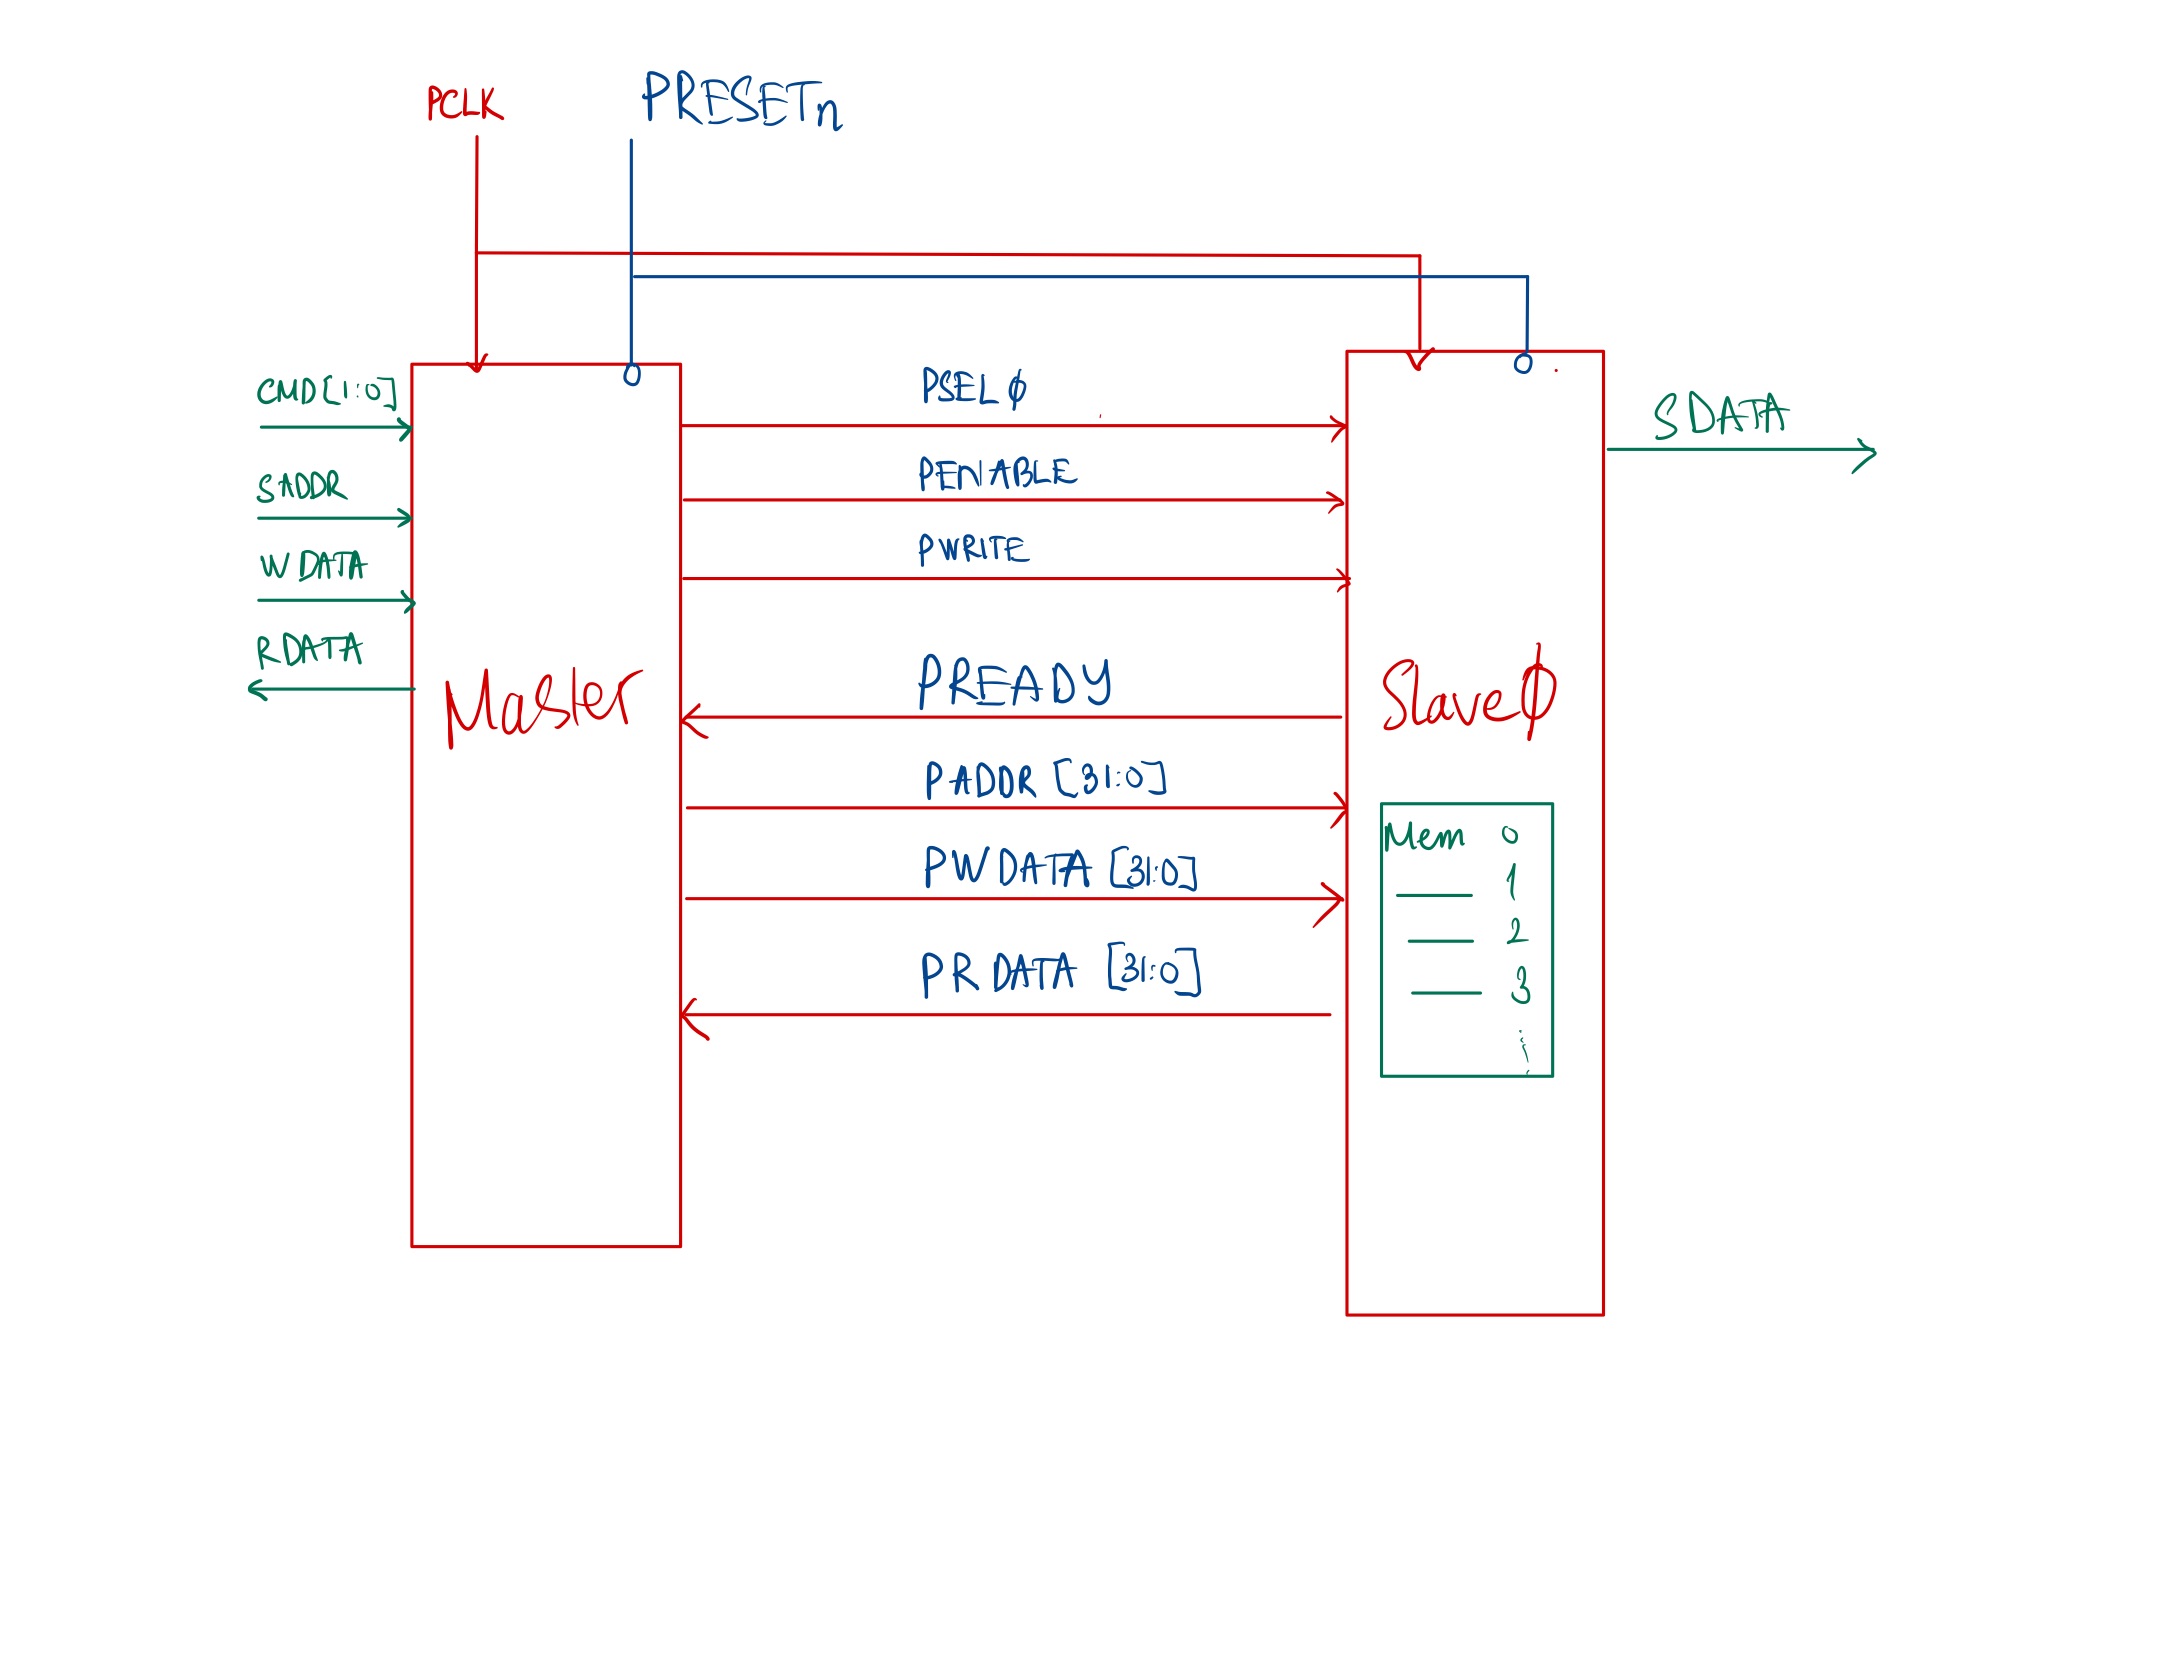 PCLK
PRESETn
CMD[1:0]
SADDR
WDATA
RDATA
Master
PSELϕ
PENABLE
PWRITE
PREADY
PADDR [31:0]
PWDATA [31:0]
PRDATA [31:0]
Slaveϕ
Mem 0
1
2
3
SDATA